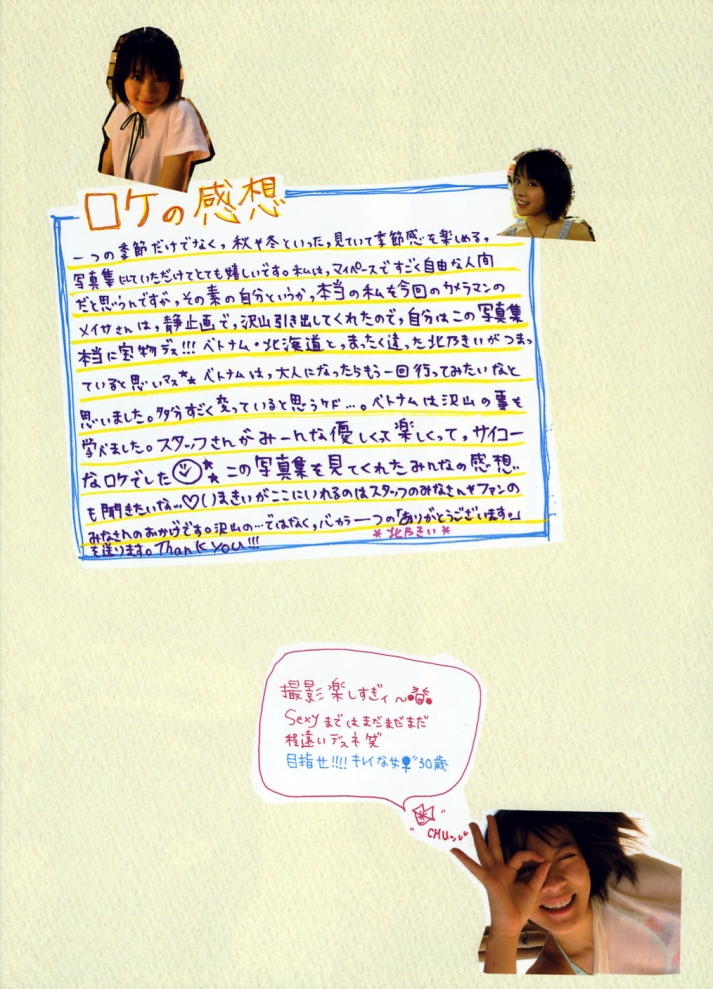 ロケの感想
一つの季節だけでなく，秋や冬といった，見ていて季節感を楽しめる，
写真集にしていただけてとても嬉しいです。私は，マイペースですごく自由な人間
だと思うんですが，その素の自分というか，本当の私を今回のカメラマンの
メイサさんは，静止画で，沢山引き出してくれたので，自分はこの写真集
本当に宝物デス!!! ベトナム・北海道と，まったく違った北乃きいがつまっ
ていると思いマス** ベトナムは，大人になったらもう一回行ってみたいなと
思いました。多分すごく変っていると思うケド…。ベトナムは沢山の事を
学べました。スタッフさんがみーんな優しくって楽しくって，サイコー
なロケでした この写真集を見てくれたみんなの感想..
も聞きたいな...♡いまきいがここにいれるのはスタッフのみなさんやファンの
みなさんのおかげです。沢山の…ではなく，心から一つの「ありがとうございます。」
を送ります。Thank you!!!
*北乃きい*
撮影楽しすぎィ〜
Sexyまではまだまだまだ
程遠いデスネ笑
目指せ!!!! キレイな女♀"30歳
"CHUッ